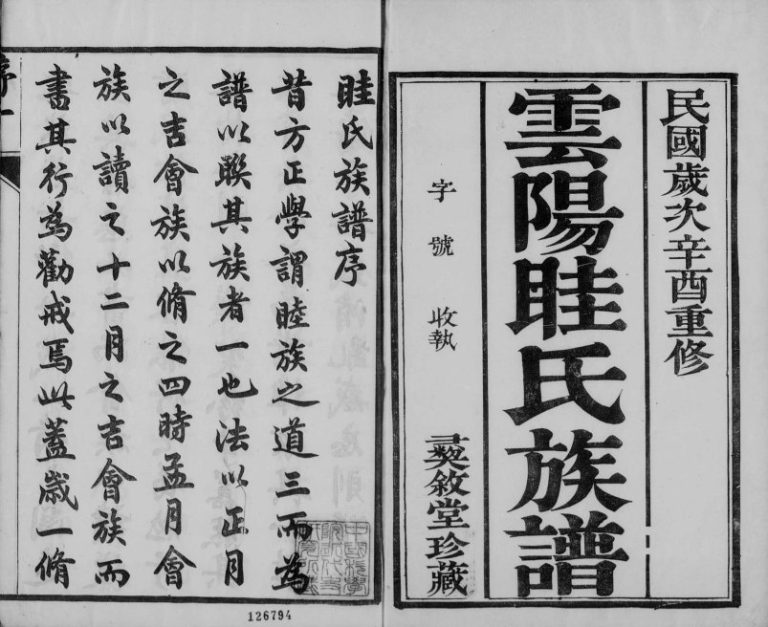 民國歲次辛酉重修
雲陽眭氏族譜
字號 收執
彝敘堂珍藏
眭氏族譜序
昔方正學謂睦族之道三而為
譜以聯其族者一也法以正月
之吉會族以脩之四時孟月會
族以讀之十二月之吉會族而
書其行為勸戒焉此蓋歲一脩
序一
126794